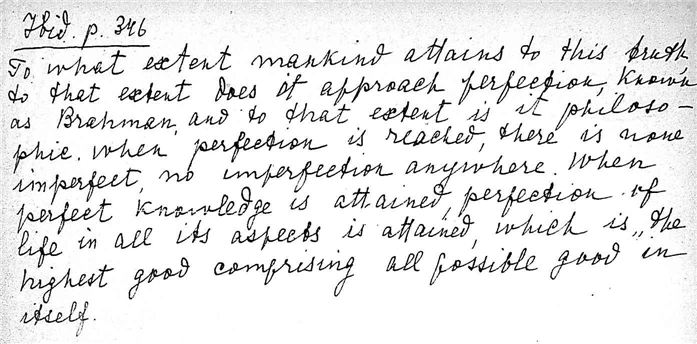 Ibid. p. 346
To what extent mankind attains to this truth
to that extent does it approach perfection, known
as Brahman, and to that extent is it philoso-
phic. When perfection is reached, there is none
imperfect, no imperfection anywhere. When
perfect knowledge is attained, perfection of
life in all its aspects is attained, which is „the
highest good comprising all possible good in
itself.